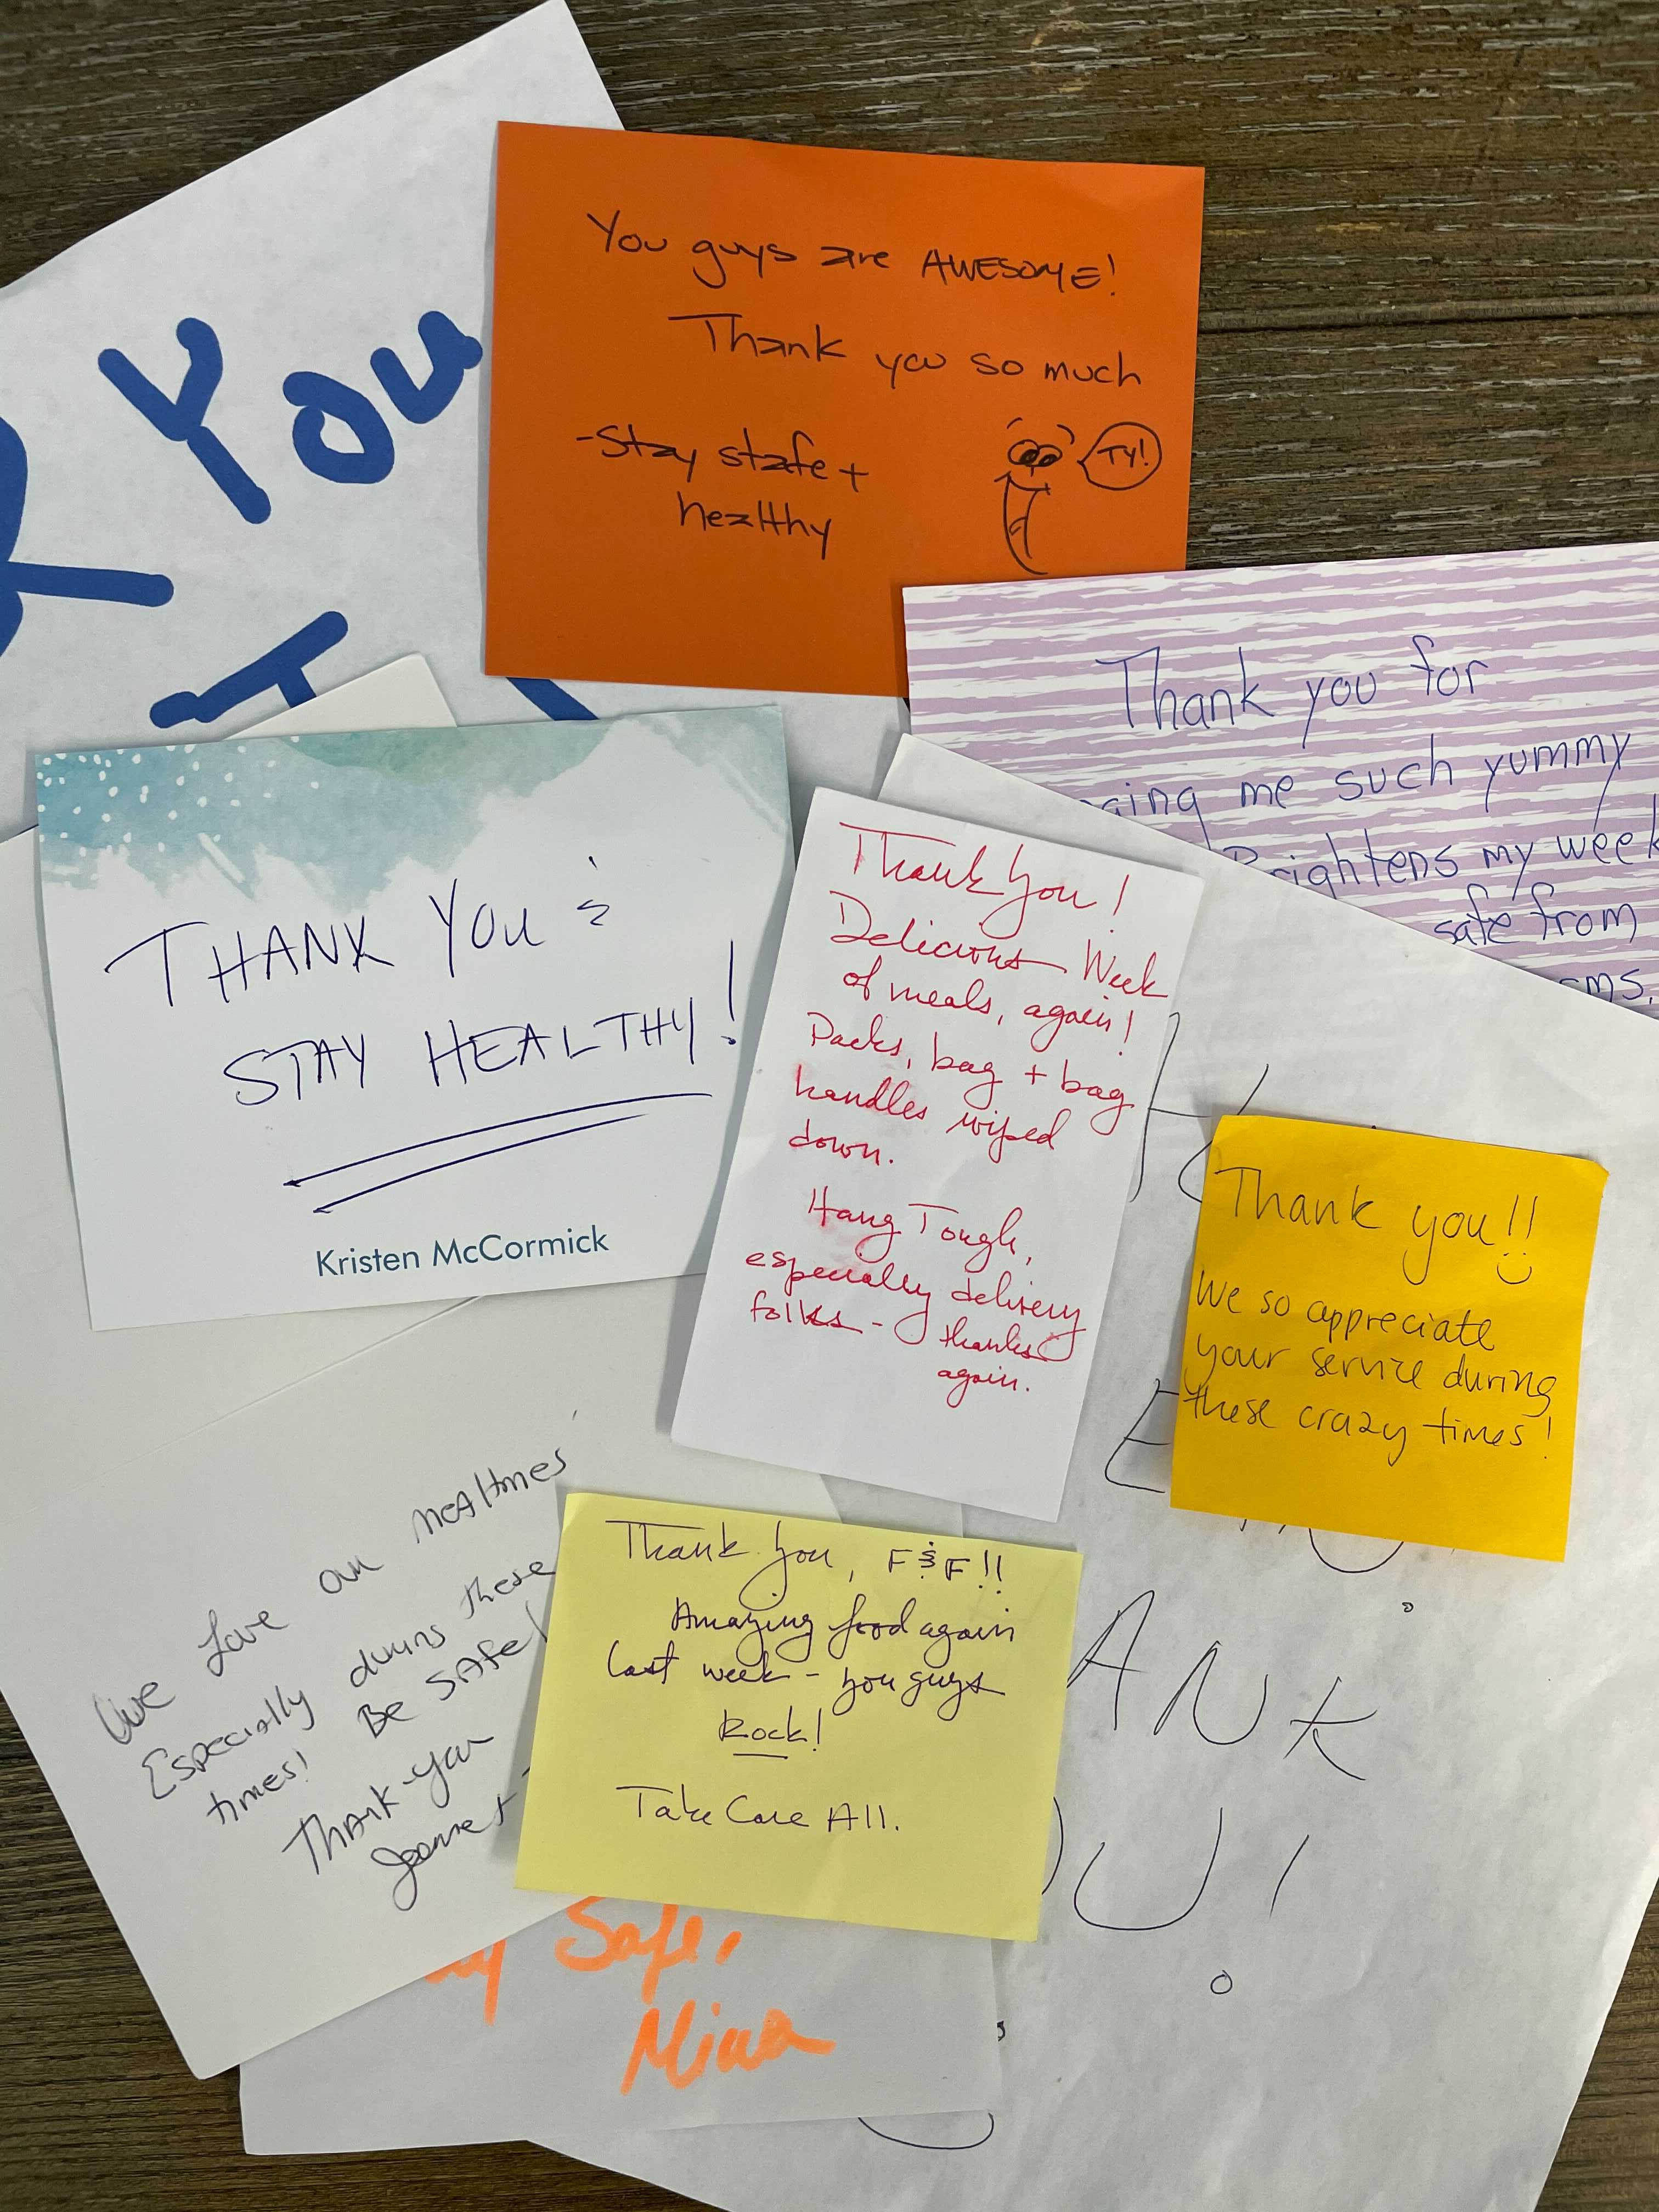 You
You guys are AWESOME!
Thank you so much
-Stay stafe +
healthy
TY!
Thank you for
me such yummy
Brightens my week
safe from
THANK YOU &
STAY HEALTHY!
Kristen McCormick
Thank You!
Delicious Week
of meals, again!
Packs, bag + bag
handles wiped
down.
Hang Tough,
especially delivery
folks - thanks
again.
Thank you!!
We so appreciate
your service during
these crazy times!
We Love our mealtimes
Especially during these
times! Be SAfe!
Thank-you
Thank you, F&F!!
Amazing food again
last week - you guys
Rock!
Take Care All.
ANK
U!
Safe,